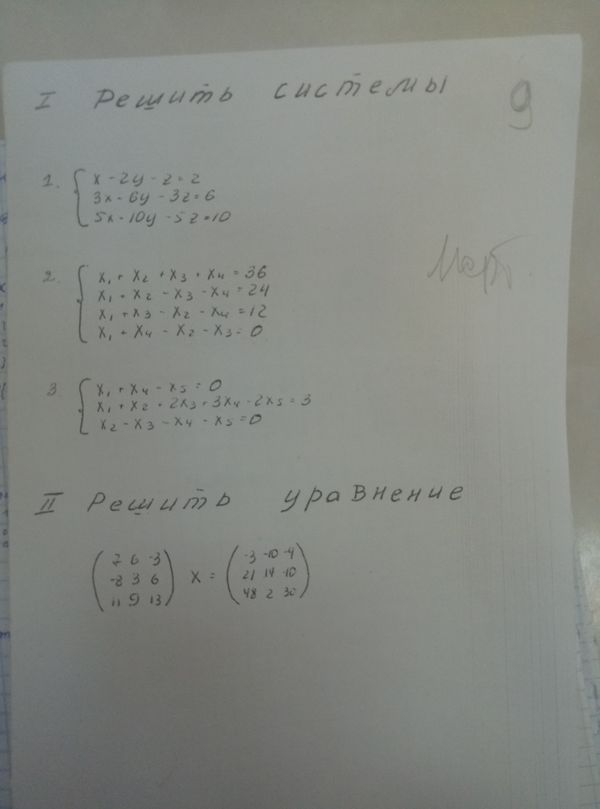 I Решить системы
9
1. { x - 2y - z = 2
3x - 6y - 3z = 6
5x - 10y - 5z = 10
2. { x₁ + x₂ + x₃ + x₄ = 36
x₁ + x₂ - x₃ - x₄ = 24
x₁ + x₃ - x₂ - x₄ = 12
x₁ + x₄ - x₂ - x₃ = 0
3. { x₁ + x₄ - x₅ = 0
x₁ + x₂ + 2x₃ + 3x₄ - 2x₅ = 3
x₂ - x₃ - x₄ - x₅ = 0
II Решить уравнение
( 7 6 -3 ) ( -3 -10 -4 )
( -8 3 6 ) X = ( 21 14 -10 )
( 11 9 13 ) ( 48 2 30 )